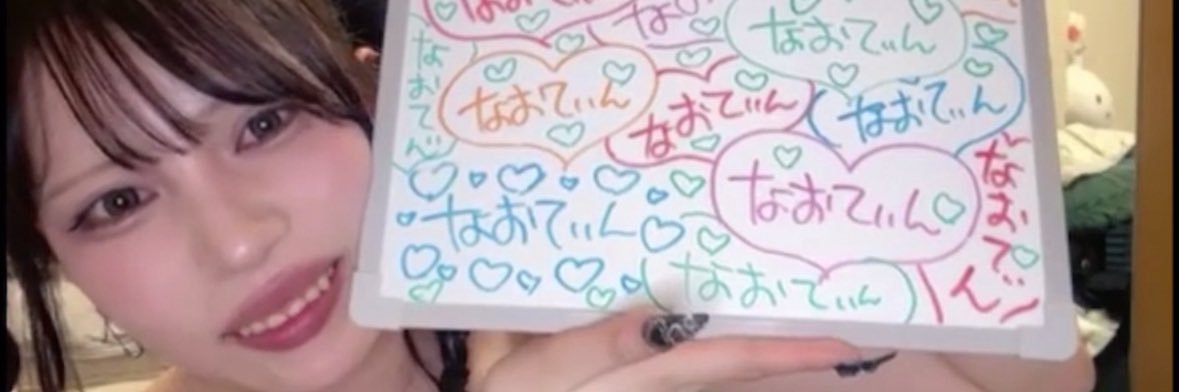 なおてぃん
なお
なおてぃん
なおてぃん
なおてぃん
なおてぃん
なおてぃん
なおてぃん
なおてぃん
なおてぃん
なおてぃん